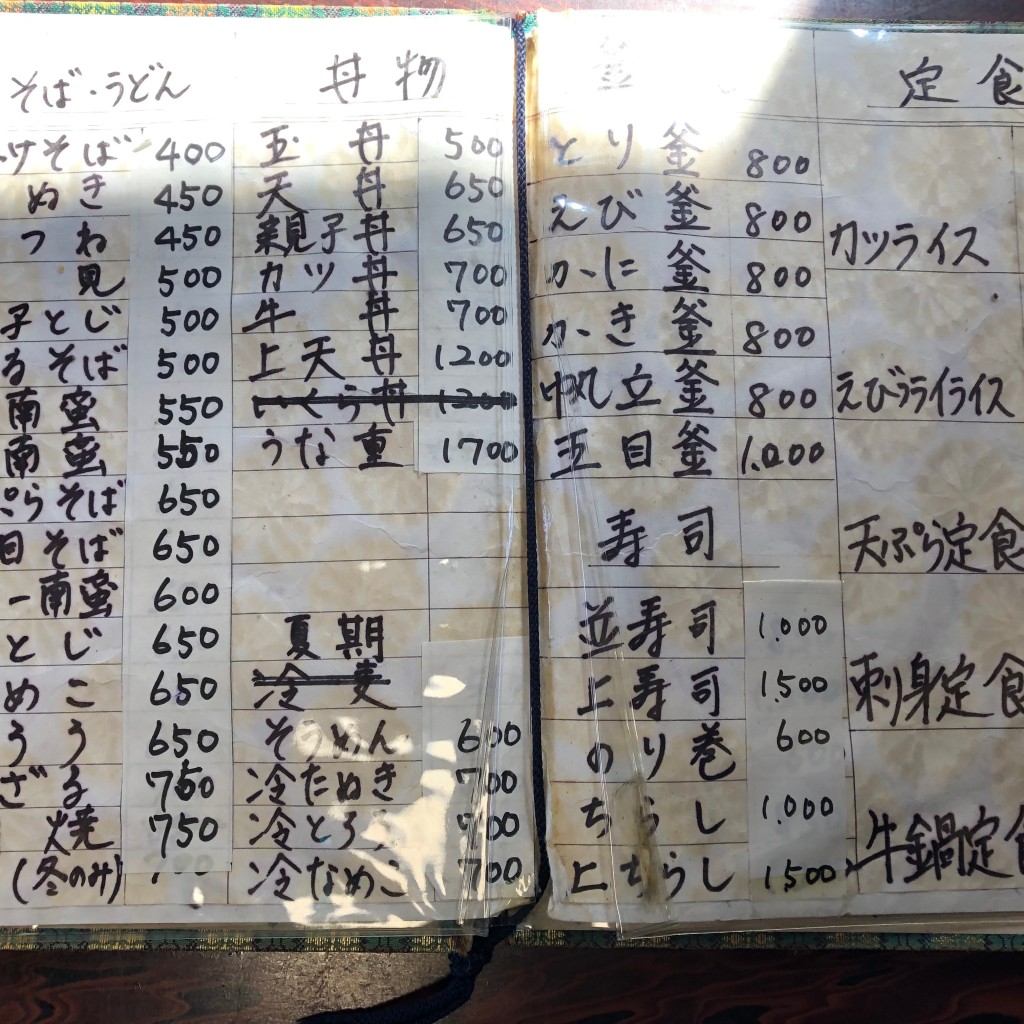 そば・うどん
けそば 400
ぬき 450
つね 450
見 500
子とじ 500
るそば 500
南蛮 550
南蛮 550
ぷらそば 650
目そば 650
ー南蛮 600
とじ 650
めこ 650
うう 650
ざる 750
焼 750
(冬のみ)
丼物
玉丼 500
天丼 650
親子丼 650
カツ丼 700
牛丼 700
上天丼 1200
いくら丼 1200
うな重 1700
夏期
冷麦
そうめん 600
冷たぬき 700
冷とろろ 700
冷なめこ 700
釜
とり釜 800
えび釜 800
かに釜 800
かき釜 800
帆立釜 800
五目釜 1.000
寿司
並寿司 1.000
上寿司 1.500
のり巻 600
ちらし 1.000
上ちらし 1.500
定食
カツライス
えびフライライス
天ぷら定食
刺身定食
牛鍋定食